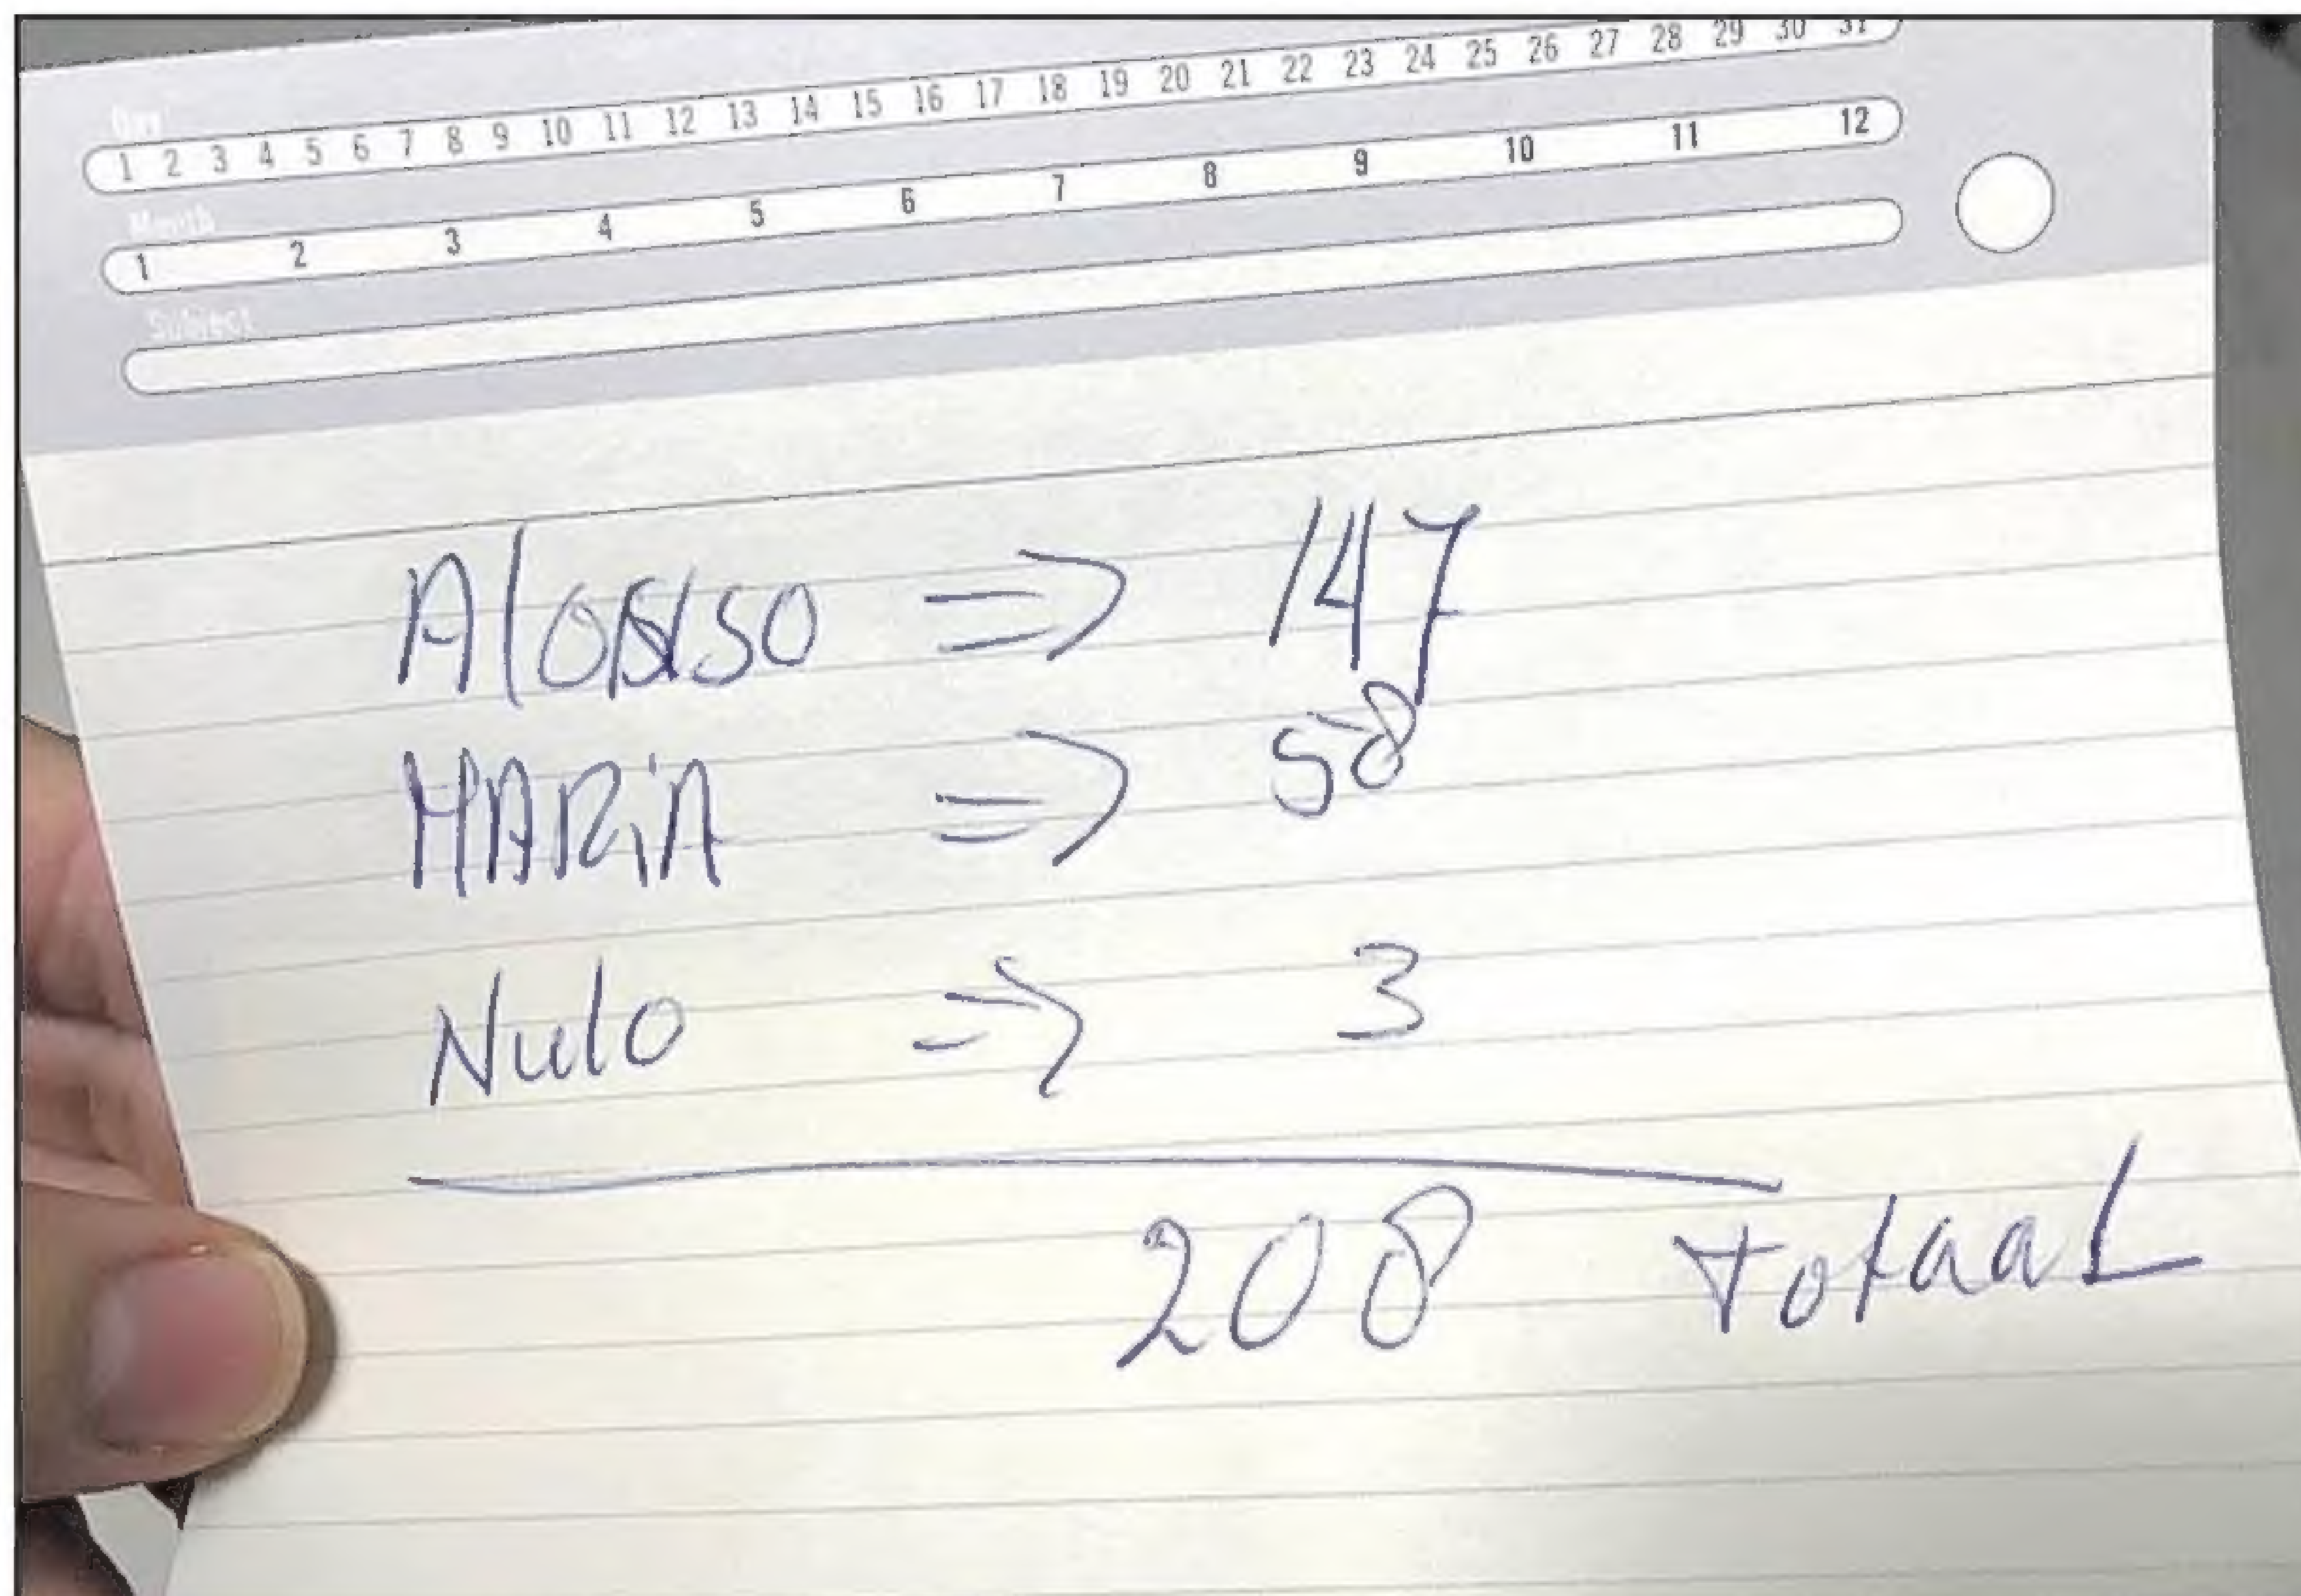 Day
1 2 3 4 5 6 7 8 9 10 11 12 13 14 15 16 17 18 19 20 21 22 23 24 25 26 27 28 29 30 31
Month
1 2 3 4 5 6 7 8 9 10 11 12
Subject
Alonso => 147
MARiA => 58
Nulo => 3
208 TotaaL